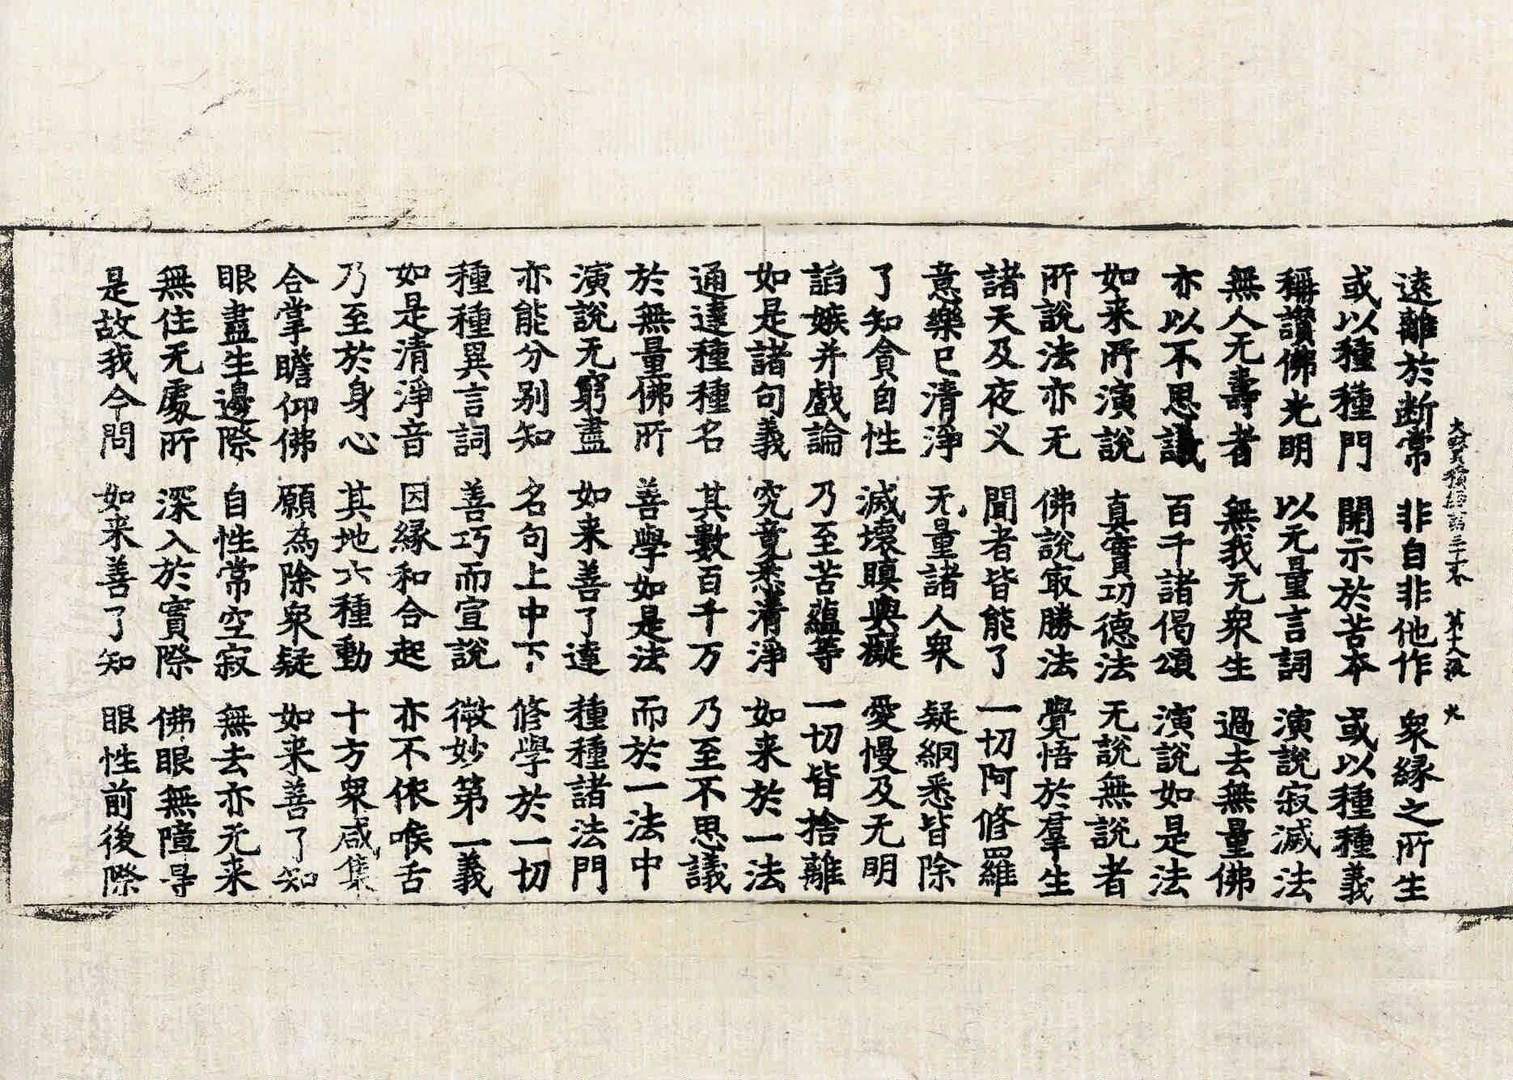 大寳積經卷三十六 第十八張 火
遠離於断常 非自非他作 衆緣之所生
或以種種門 開示於苦本 或以種種義
稱讚佛光明 以无量言詞 演說寂滅法
無人无壽者 無我无衆生 過去無量佛
亦以不思議 百千諸偈頌 演說如是法
如来所演說 真實功德法 无說無說者
所說法亦无 佛說㝡勝法 覺悟於羣生
諸天及夜义 聞者皆能了 一切阿修羅
意樂已清淨 无量諸人衆 疑網悉皆除
了知貪自性 滅壞瞋與癡 愛慢及无明
諂嫉并戲論 乃至苦蘊等 一切皆捨離
如是諸句義 究竟悉清淨 如来於一法
通達種種名 其數百千万 乃至不思議
於無量佛所 善學如是法 而於一法中
演說无窮盡 如来善了達 種種諸法門
亦能分别知 名句上中下 修學於一切
種種異言詞 善巧而宣說 微妙第一義
如是清淨音 因緣和合起 亦不依喉舌
乃至於身心 其地六種動 十方衆咸集
合掌瞻仰佛 願為除衆疑 如来善了知
眼盡生邊際 自性常空寂 無去亦无来
無住无處所 深入於實際 佛眼無障导
是故我今問 如来善了知 眼性前後際